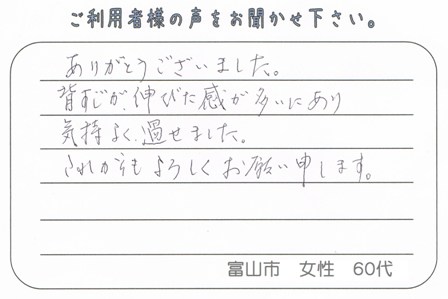 ご利用者様の声をお聞かせ下さい。
ありがとうございました。
背すじが、伸びた感が多いにあり
気持よく、過せました。
これからもよろしくお願い申します。
富山市 女性 60代